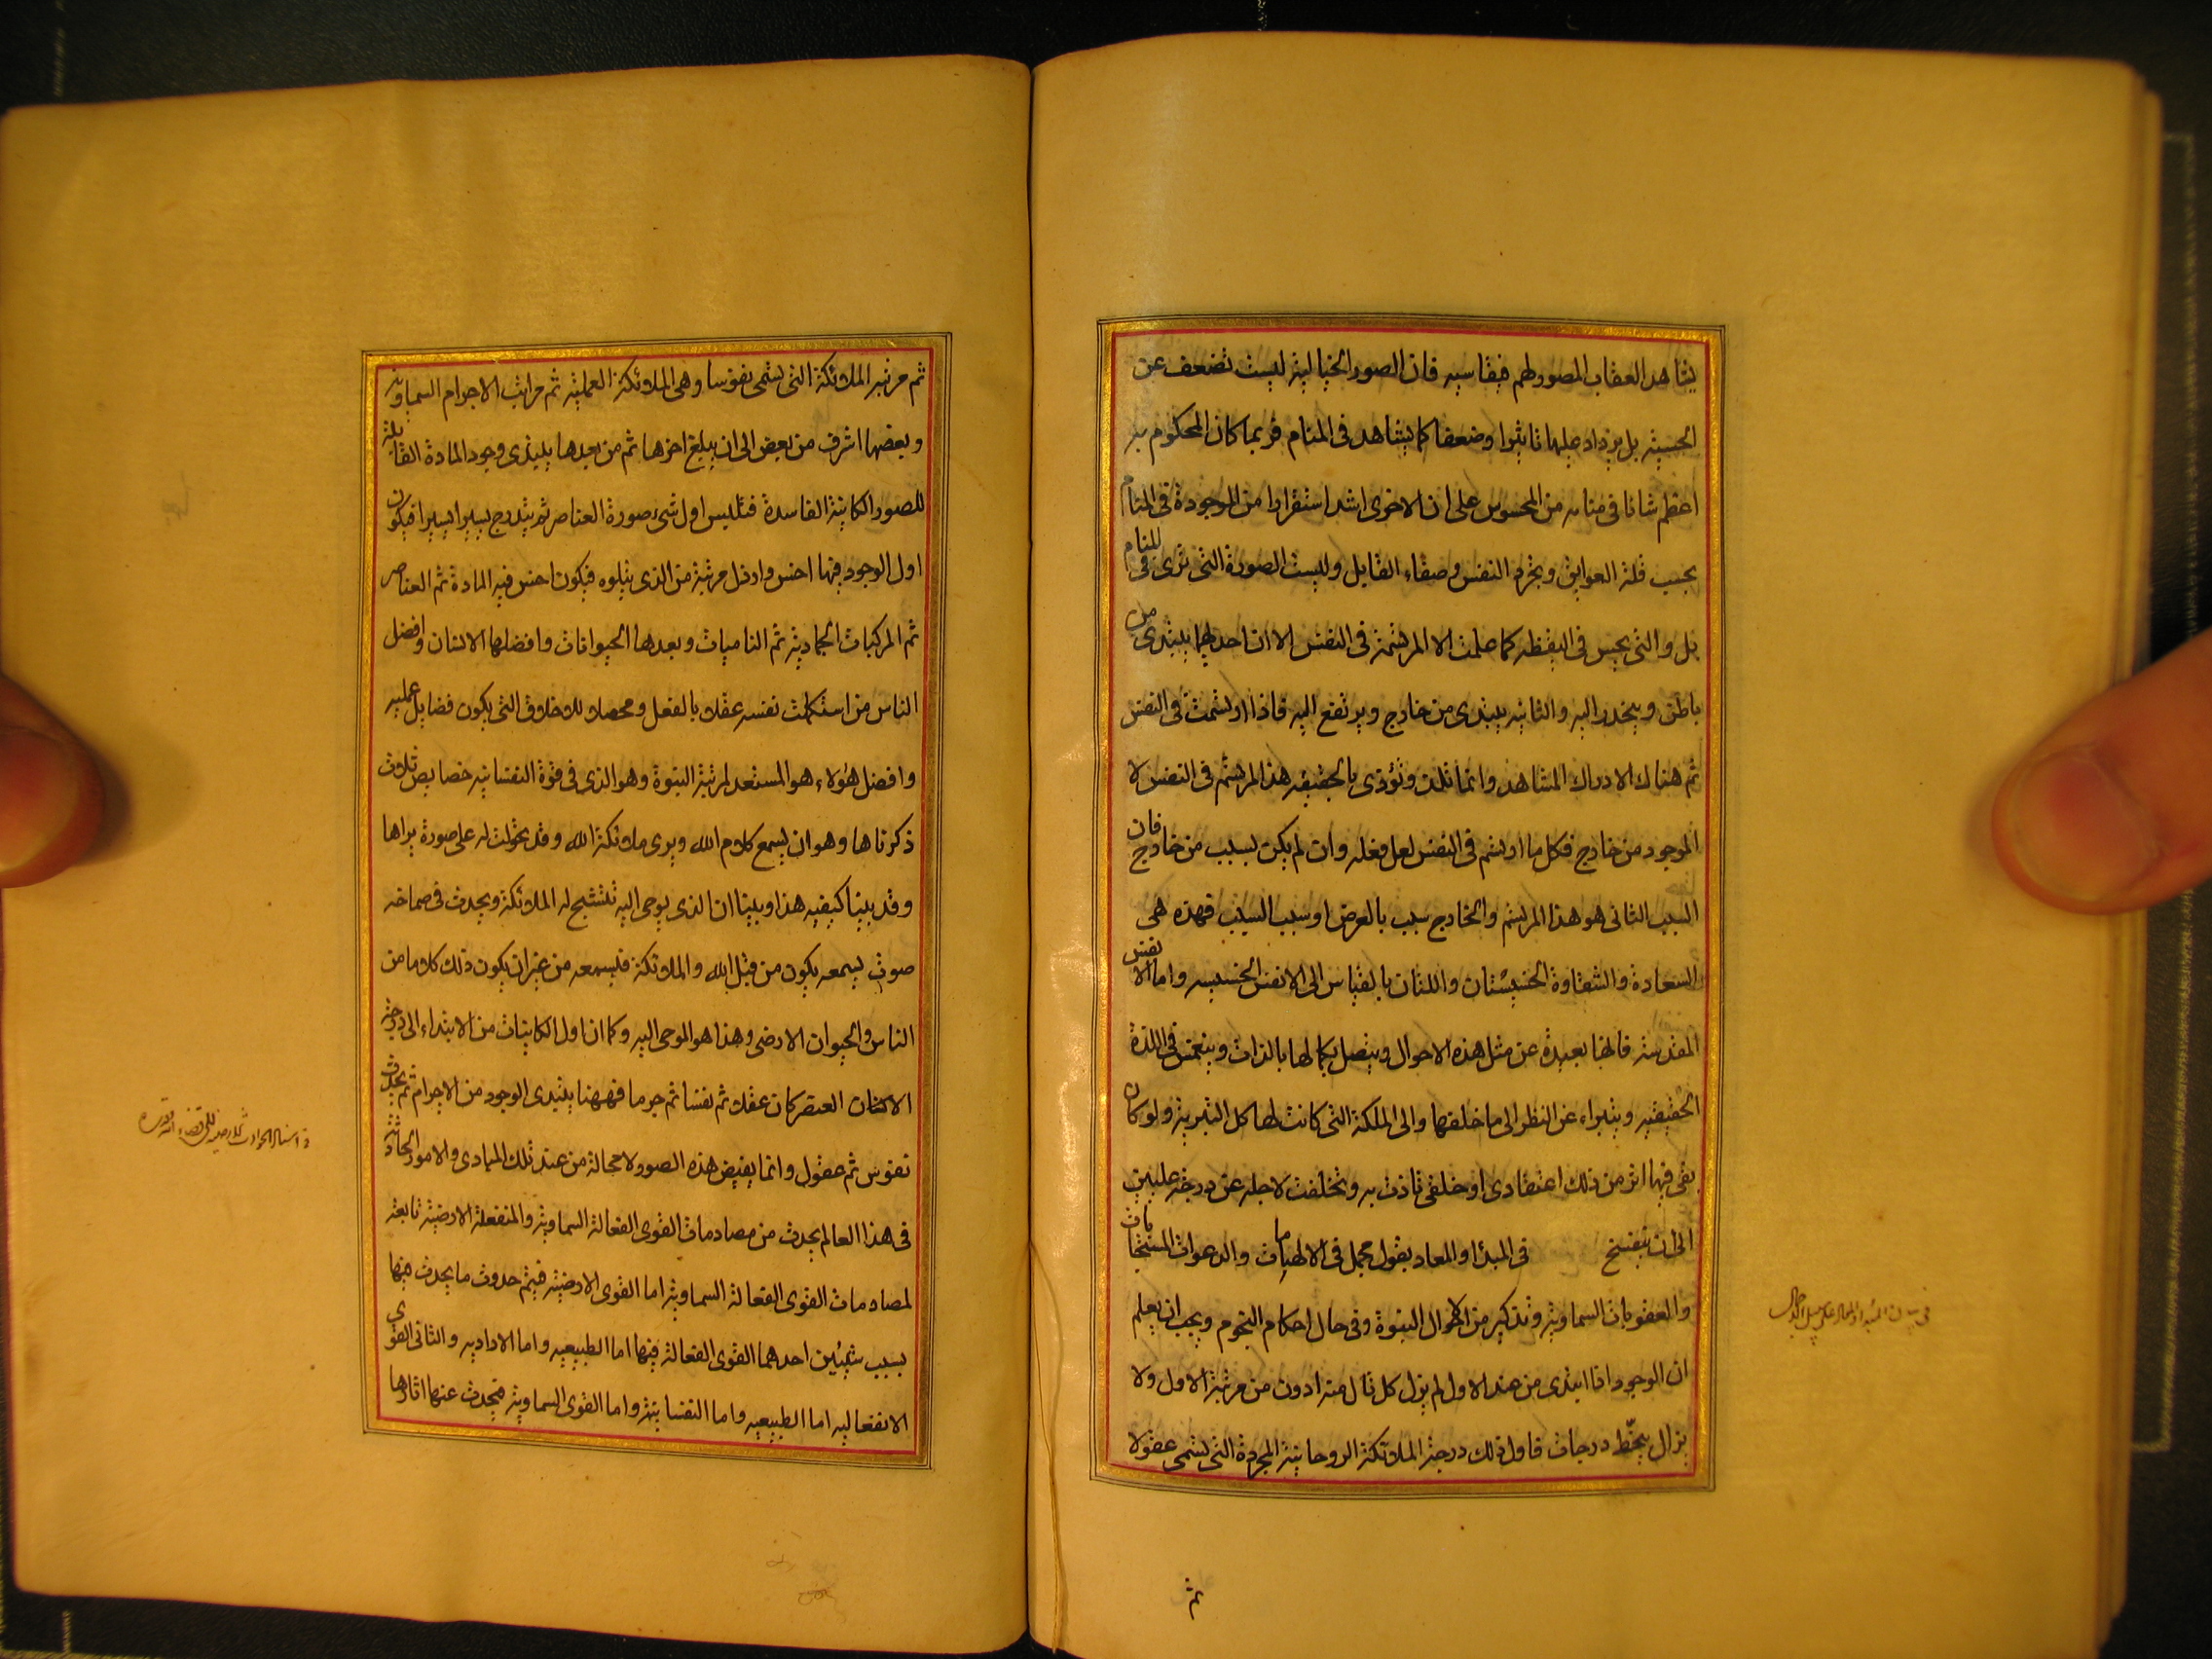 يشاهد العقاب المصور لهم فيقاسيه فان الصور الخيالية ليست تضعف عن
الحسية بل يزداد عليها تاثيرا وضعفا كما يشاهد فى المنام فربما كان المحكوم به
اعظم شانا فى منامه من المحسوس على ان الاخرى اشد استقرارا من الموجودة فى المنام
بحسب قلة العوايق وتجرد النفس وصفاء القابل وليست الصورة التى ترى فى المنام
بل والتى يحس فى اليقظه كما علمت الا المرتسمة فى النفس الا ان احديهما يبتدى من
باطن وينحدر اليه والثانيه يبتدى من خارج ويرتفع اليه فاذا ارتسمت فى النفس
تم هناك الادراك المشاهد وانما تلذ وتؤذى بالحقيقه هذا المرتسم فى النفس لا
الموجود من خارج فكل ما ارتسم فى النفس لعل فعله وان لم يكن بسبب من خارج فان
السبب الثانى هو هذا المرتسم والخارج سبب بالعرض او سبب السبب فهذه هى
السعادة والشقاوة الخسيستان واللتان بالقياس الى الانفس الخسيسه واما الانفس
المقدسة فانها بعيدة عن مثل هذه الاحوال ويتصل بكمالها بالذات وينغمس فى اللذة
الحقيقيه ويتبراء عن النظر الى ما خلفها والى الملكة التى كانت لها كل التبرية ولو كان
بقى فيها اثر من ذلك اعتقادى او خلقى تاذت به وتخلفت لاجله عن درجة عليين
الى ان تنفسخ فى المبدأ والمعاد بقول مجمل فى الالهامات والدعوات المستجابات
والعقوبات السماوية وتذكير من الاحوال النبوة وفى حال احكام النجوم ويجب ان يعلم
ان الوجود اذا ابتدى من عند الاول لم يزل كل تال منه ادون من مرتبة الاول ولا
يزال ينحّط درجات فاول ذلك درجة الملائكة الروحانية المجردة التى يسمى عقولا
ثم
ثم مرتبه الملائكة التى يسمى نفوسا وهى الملائكة العملية ثم مراتب الاجرام السماوية
وبعضها اشرف من بعض الى ان يبلغ اخرها ثم من بعدها يبتدى وجود المادة القابلة
للصور الكاينة الفاسدة فتلبس اول شىء صورة العناصر ثم يتدرج يسيرا يسيرا فيكون
اول الوجود فيها اخس وارذل مرتبة من الذى يتلوه فيكون اخس فيه المادة ثم العناصر
ثم المركبات الجمادية ثم الناميات وبعدها الحيوانات وافضلها الانسان وافضل
الناس من استكملت نفسه عقلا بالفعل ومحصلا للاخلاق التى يكون فضايل عمليه
وافضل هؤلاء هو المستعد لمرتبة النبوة وهو الذى فى قوة النفسانيه خصايص ثلاث
ذكرناها وهو ان يسمع كلام الله ويرى ملائكة الله وقد تحولت له على صورة يراها
وقد بينا كيفيه هذا وبينا ان الذى يوحى اليه تتشبح له الملائكة ويحدث فى صماخه
صوت يسمعه يكون من قبل الله والملائكة فيسمعه من غير ان يكون ذلك كلاما من
الناس والحيوان الارضى وهذا هو الموحى اليه وكما ان اول الكاينات من الابتداء الى درجة
الانسان العنصر كان عقلا ثم نفسا ثم جرما فههنا يبتدى الوجود من الاجرام ثم يحدث
نفوس ثم عقول وانما يفيض هذه الصور لا محالة من عند تلك المبادى والامور الحادثة
فى هذا العالم يحدث من مصادمات القوى الفعالة السماوية والمنفعلة الارضية تابعة
لمصادمات القوى الفعالة السماوية اما القوى الارضية فيتم حدوث ما يحدث فيها
بسبب شيئين احدهما القوى الفعالة فيها اما الطبيعيه واما الاداديه والثانى القوى
الانفعاليه اما الطبيعيه واما النفسانية واما القوى السماوية فيحدث عنها اثارها